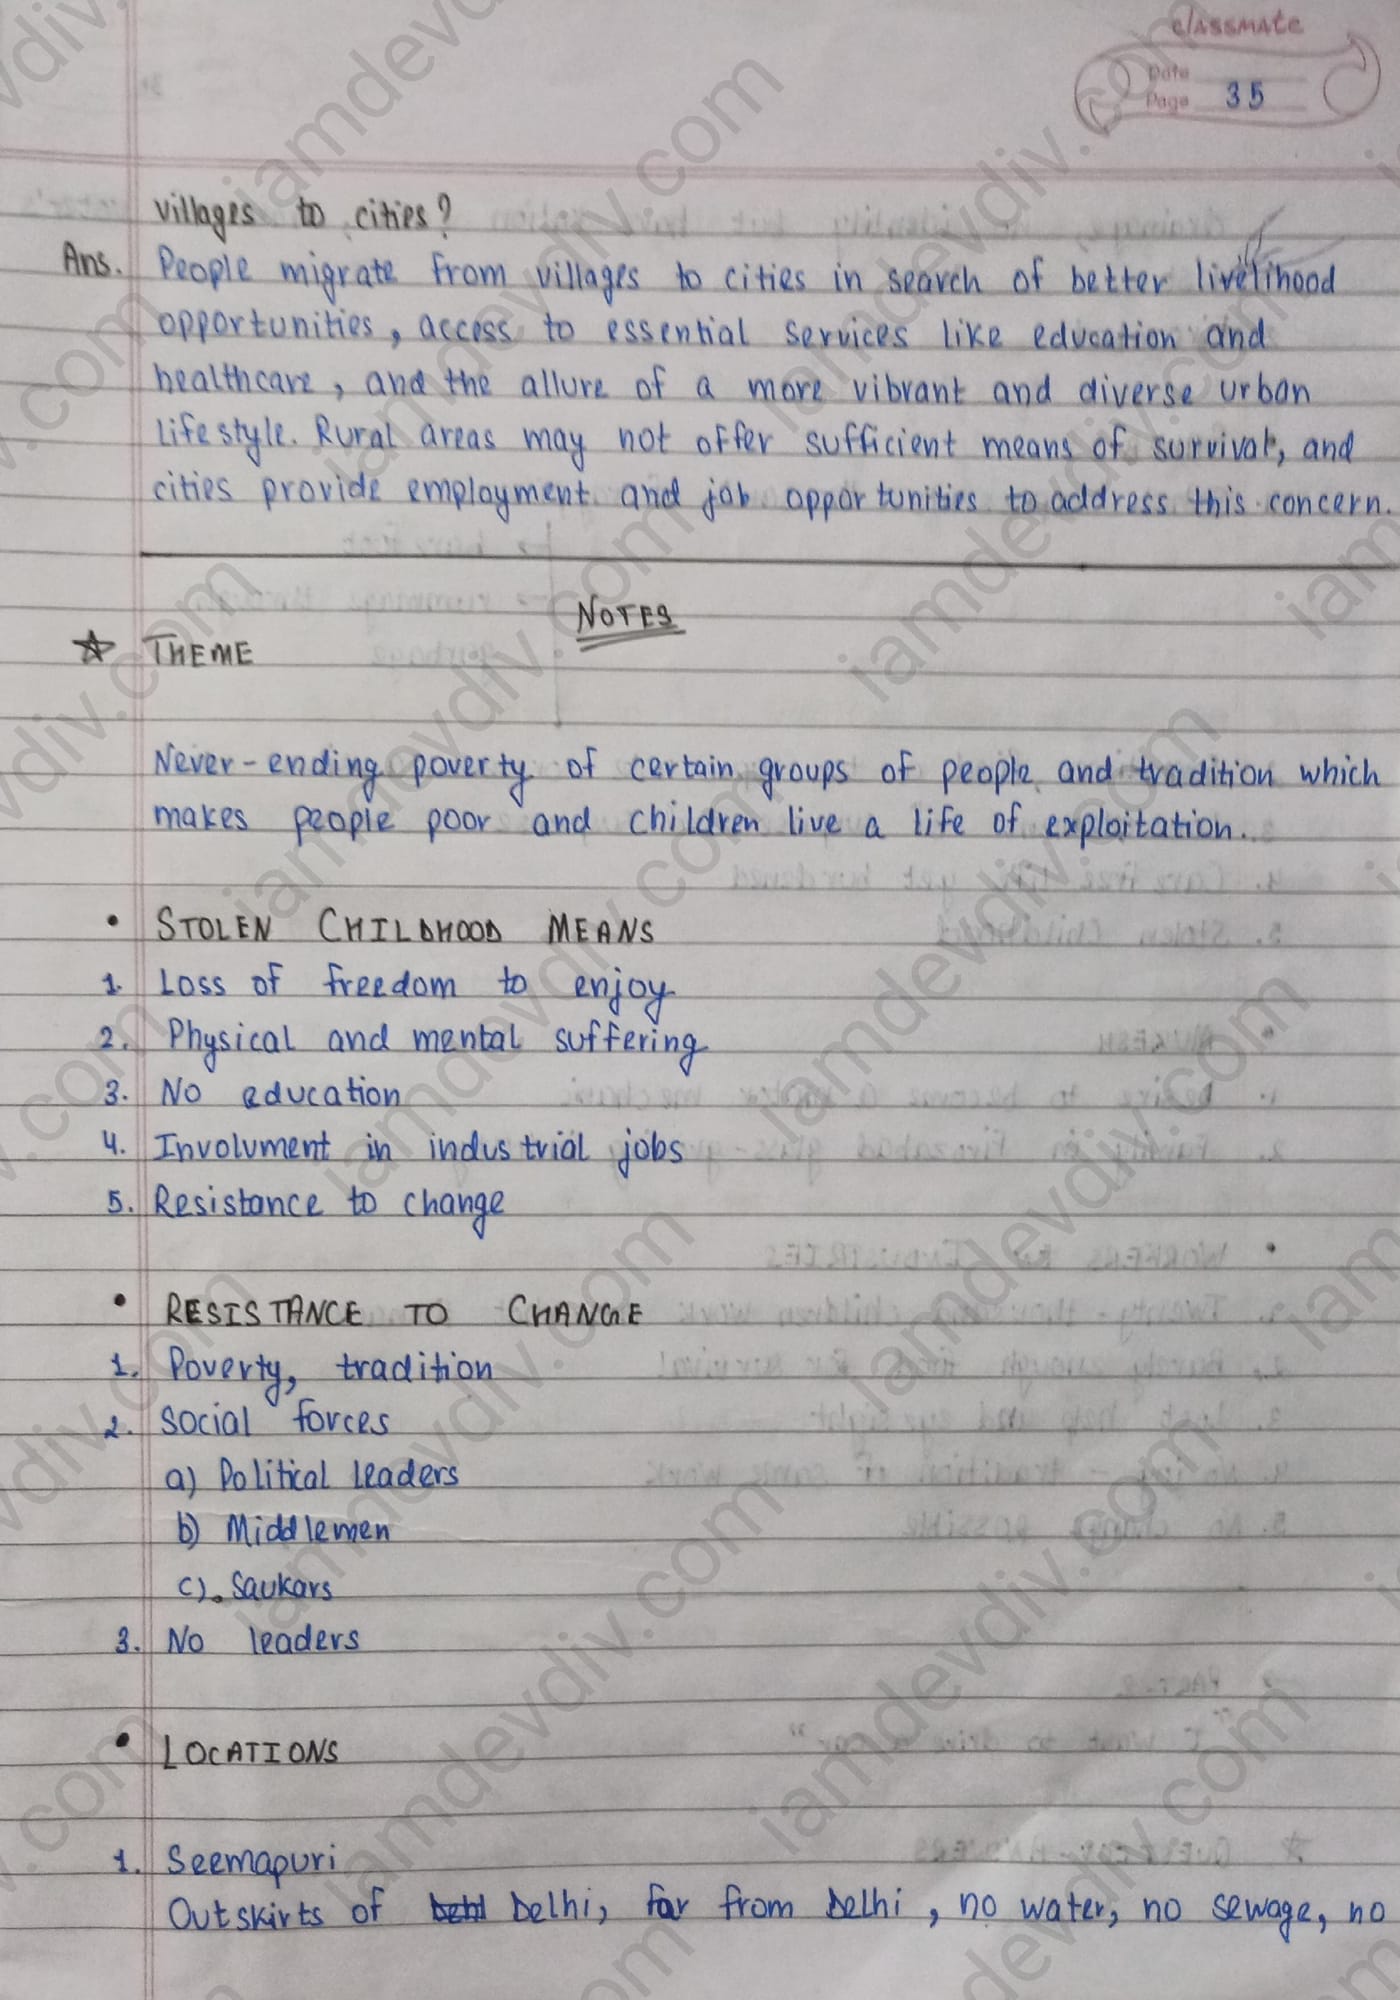 classmate
Date
Page 35
villages to cities?
Ans. People migrate from villages to cities in search of better livelihood
opportunities, access to essential services like education and
healthcare, and the allure of a more vibrant and diverse urban
lifestyle. Rural areas may not offer sufficient means of survival, and
cities provide employment and job opportunities to address this concern.
NOTES
☆ THEME
Never-ending poverty of certain groups of people and tradition which
makes people poor and children live a life of exploitation.
• STOLEN CHILDHOOD MEANS
1. Loss of freedom to enjoy
2. Physical and mental suffering
3. No education
4. Involvment in industrial jobs
5. Resistance to change
• RESISTANCE TO CHANGE
1. Poverty, tradition
2. Social forces
a) Political leaders
b) Middlemen
c). Saukars
3. No leaders
• LOCATIONS
1. Seemapuri
Outskirts of Delhi, far from Delhi, no water, no sewage, no
iamdevdiv.com